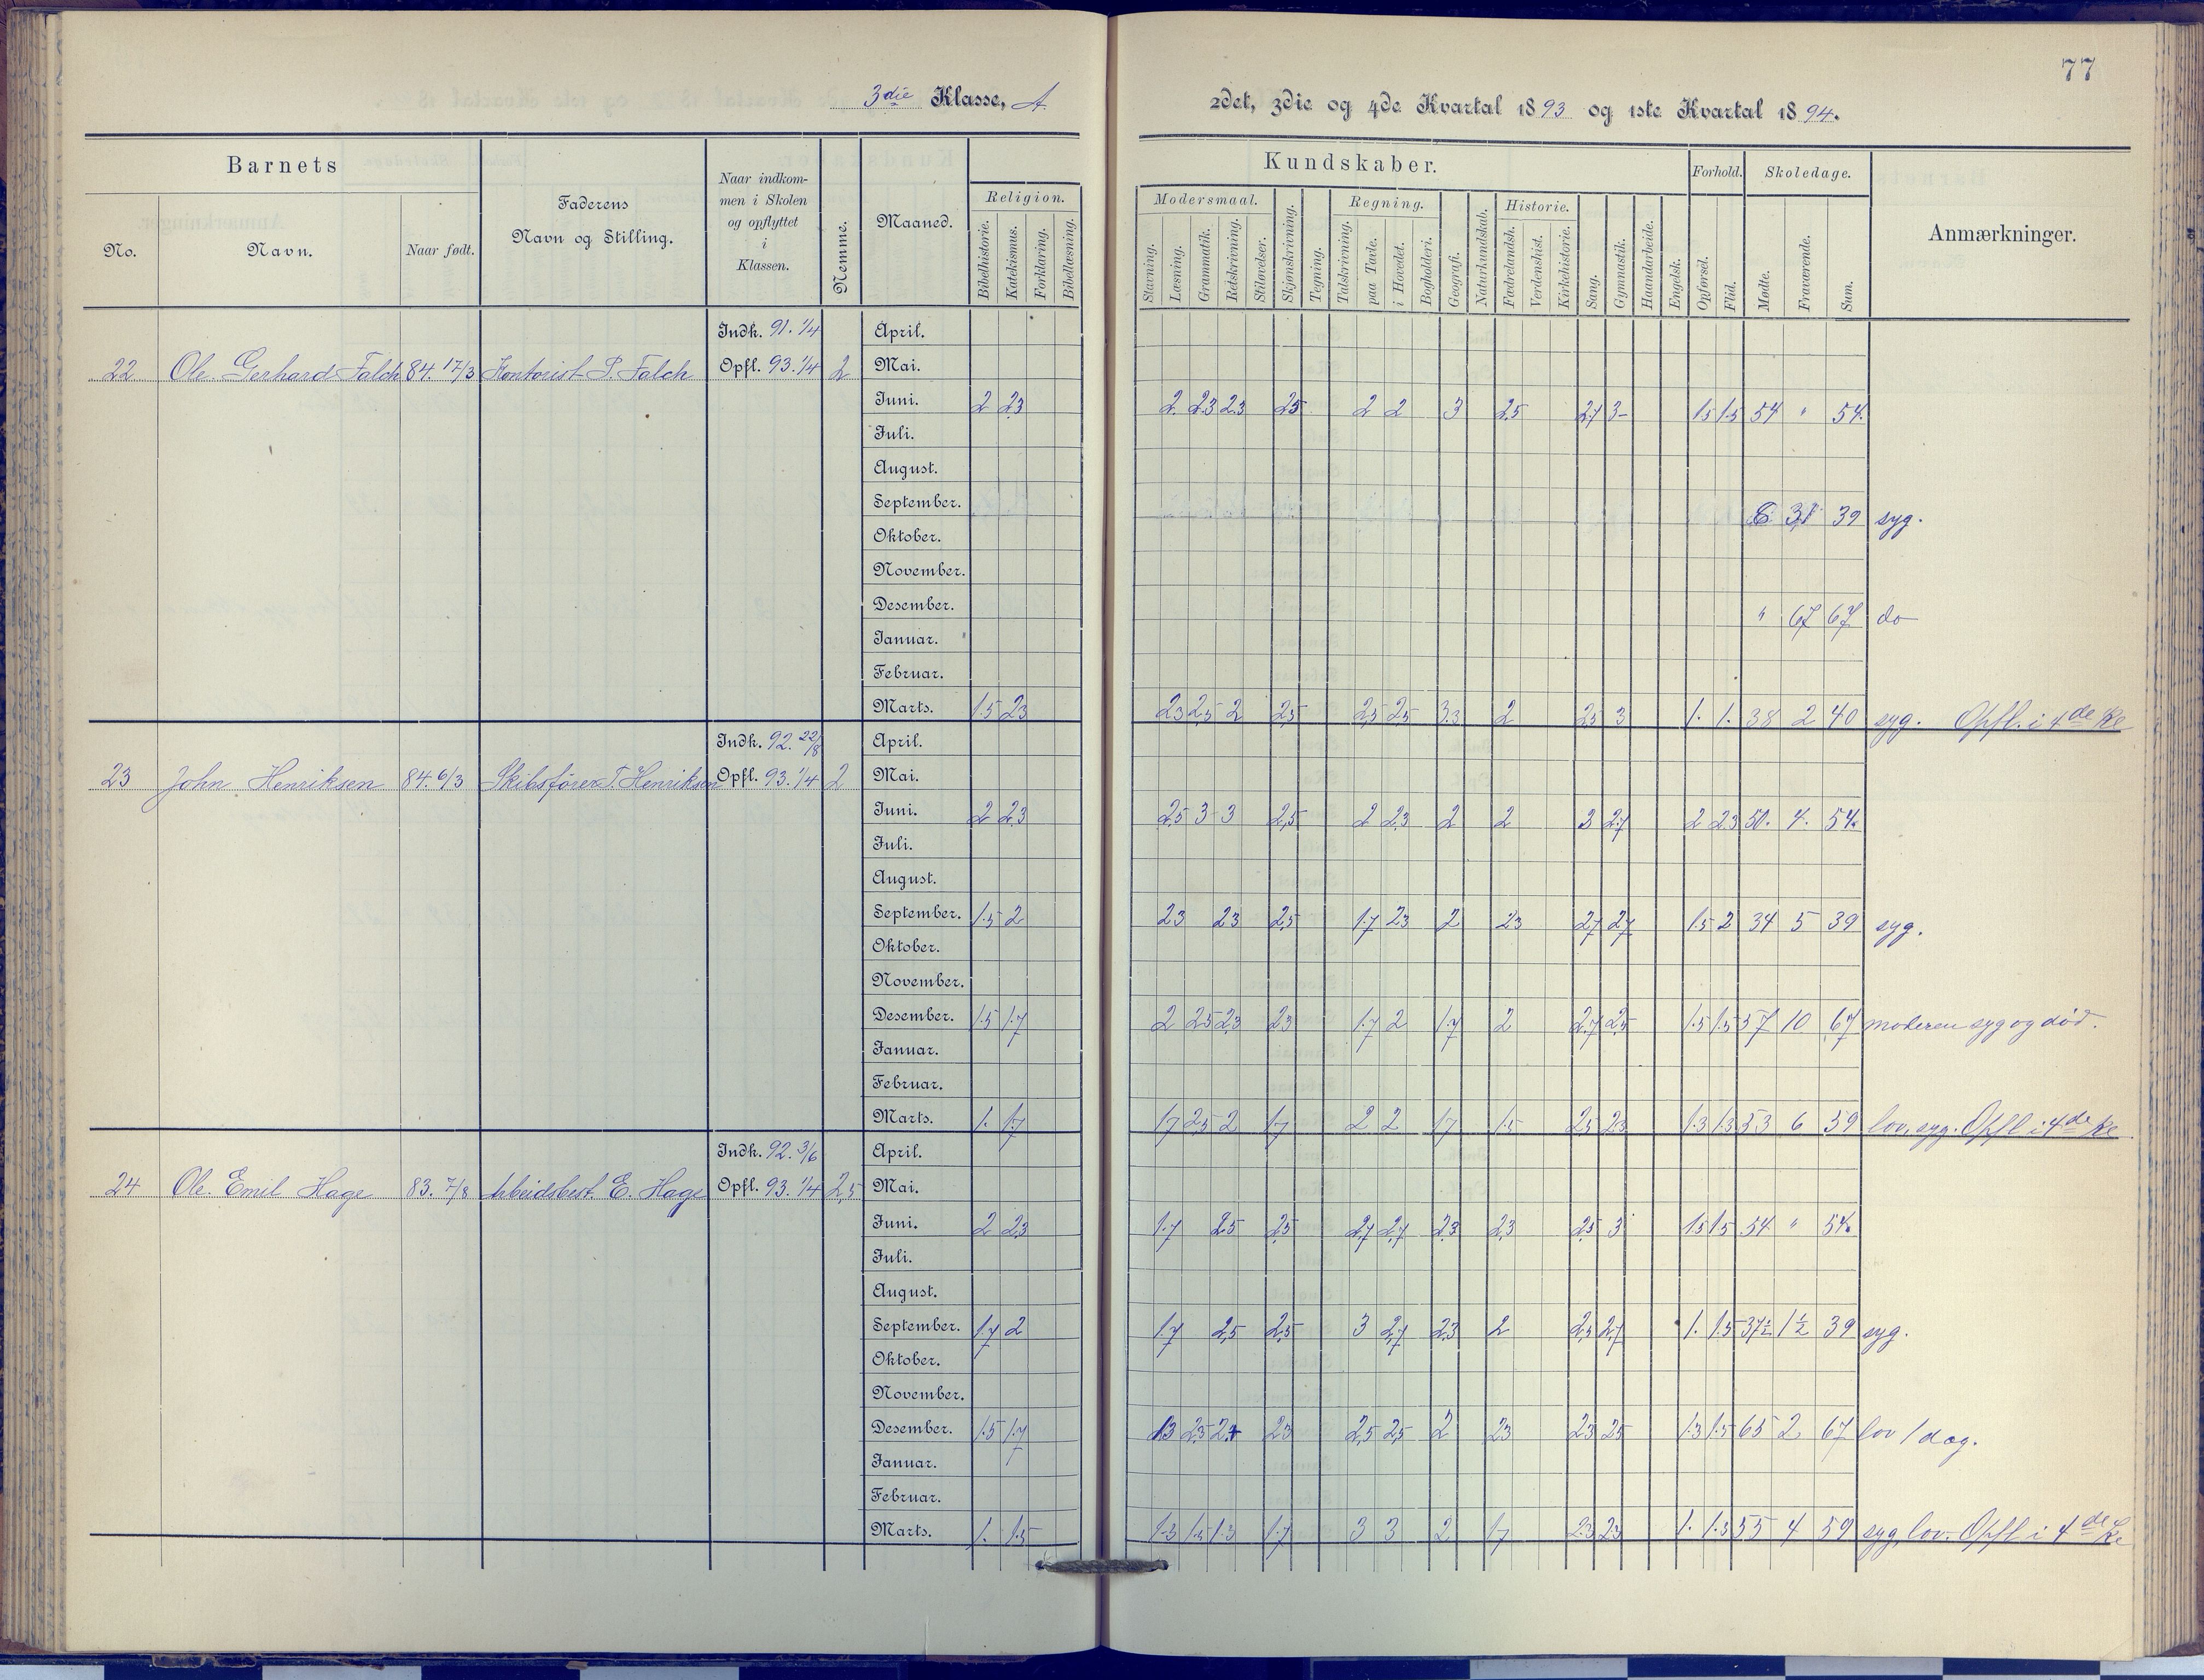 77
3die Klasse, A
2det, 3die og 4de Kvartal 1893 og 1ste Kvartal 1894.
Barnets
No.
Navn.
Naar født.
Faderens
Navn og Stilling.
Naar indkom-
men i Skolen
og opflyttet
i
Klassen.
Nemme.
Maaned.
Religion.
Bibelhistorie.
Katekismus.
Forklaring.
Bibellæsning.
Kundskaber.
Modersmaal.
Stavning.
Læsning.
Grammatik.
Retskrivning.
Stiløvelser.
Skjønskrivning.
Tegning.
Regning.
Talskrivning.
paa Tavle.
i Hovedet.
Bogholderi.
Geografi.
Naturkundskab.
Historie.
Fædrelandsh.
Verdenshist.
Kirkehistorie.
Sang.
Gymnastik.
Haandarbeide.
Engelsk.
Forhold.
Opførsel.
Flid.
Skoledage.
Mødte.
Fraværende.
Sum.
Anmærkninger.
Indk. 91. 1/4 April.
22 Ole Gerhard Falch 84. 17/3 Kontorist P. Falch Opfl. 93. 1/4 2 Mai.
Juni. 2 2.3 2 2.3 2.3 2.5 2 2 3 2.5 2.7 3- 1.5 1.5 54 " 54.
Juli.
August.
September. 31 39 syg.
Oktober.
November.
Desember. " 67 67 do
Januar.
Februar.
Marts. 1.5 2.3 2.3 2.5 2 2.5 2.5 2.5 3.3 2 2.5 3 1. 1. 38 2 40 syg. Opfl. i 4de Kl
Indk. 92. 22/8 April.
23 John Henriksen 84. 6/3 Skibsfører T. Henriksen Opfl. 93. 1/4 2 Mai.
Juni. 2 2.3 2.5 3 3 2.5 2 2.3 2 2 3 2.7 2 2.3 50. 4. 54.
Juli.
August.
September. 1.5 2 2.3 2.3 2.5 1.7 2.3 2 2.3 2.7 2.7 1.5 2 34 5 39 syg.
Oktober.
November.
Desember. 1.5 1.7 2 2.5 2.3 2.3 1.7 2 1.7 2 2.7 2.5 1.5 1.5 57 10 67 moderen syg og død.
Januar.
Februar.
Marts. 1. 1.7 1.7 2.5 2 1.7 2 2 1.7 1.5 2.5 2.3 1.3 1.3 53 6 59 lov, syg. Opfl i 4de Kl
Indk. 92. 3/6 April.
24 Ole Emil Hage 83. 7/8 Arbeidsbest. E. Hage Opfl. 93. 1/4 2.5 Mai.
Juni. 2 2.3 1.7 2.5 2.5 2.7 2.7 2.3 2.3 2.5 3 1.5 1.5 54. " 54.
Juli.
August.
September. 1.7 2 1.7 2.5 2.5 3 2.7 2.3 2 2.5 2.7 1. 1.5 37½ 1½ 39 syg.
Oktober.
November.
Desember. 1.5 1.7 1.3 2.5 2.3 2.5 2.5 2 2.3 2.3 2.5 1.3 1.5 65 2 67 lov 1 dag.
Januar.
Februar.
Marts. 1. 1.5 1.3 1.5 1.3 1.7 3 3 2 1.7 2.3 2.3 1. 1.3 55 4 59 syg, lov. Opfl i 4de Kl